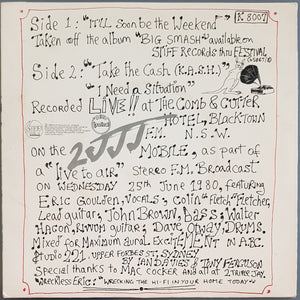 Side 1: "IT'LL Soon be the Weekend"
K 8007
Taken off the album "BIG SMASH" available on
STIFF RECORDS thru FESTIVAL
Side 2: "Take the Cash (K.A.S.H.)"
"I Need a Situation"
Recorded LIVE!! at THE COMB & CUTTER
HOTEL, BLACKTOWN
F.M. N.S.W.
ON the 2JJJ MOBILE, as part of
a "live to air" Stereo F.M. Broadcast
on WEDNESDAY 25th June 1980, featuring
ERIC Goulden, vocals; Colin "Fletch" Fletcher,
Lead guitar; JOHN BROWN, bass; Walter
Hacon, Rhythm guitar; Dave Otway, DRUMS,
Mixed for Maximum aural EXCITEMENT in A.B.C.
Studio 221, UPPER FORBES ST, SYDNEY
BY IAN DAVIES & TONY FERGUSON
Special thanks to MAC COCKER and all at 2 TRIPLE JAY.
"Wreckless ERIC: "WRECKING THE HI-FI IN YOUR HOME TODAY"